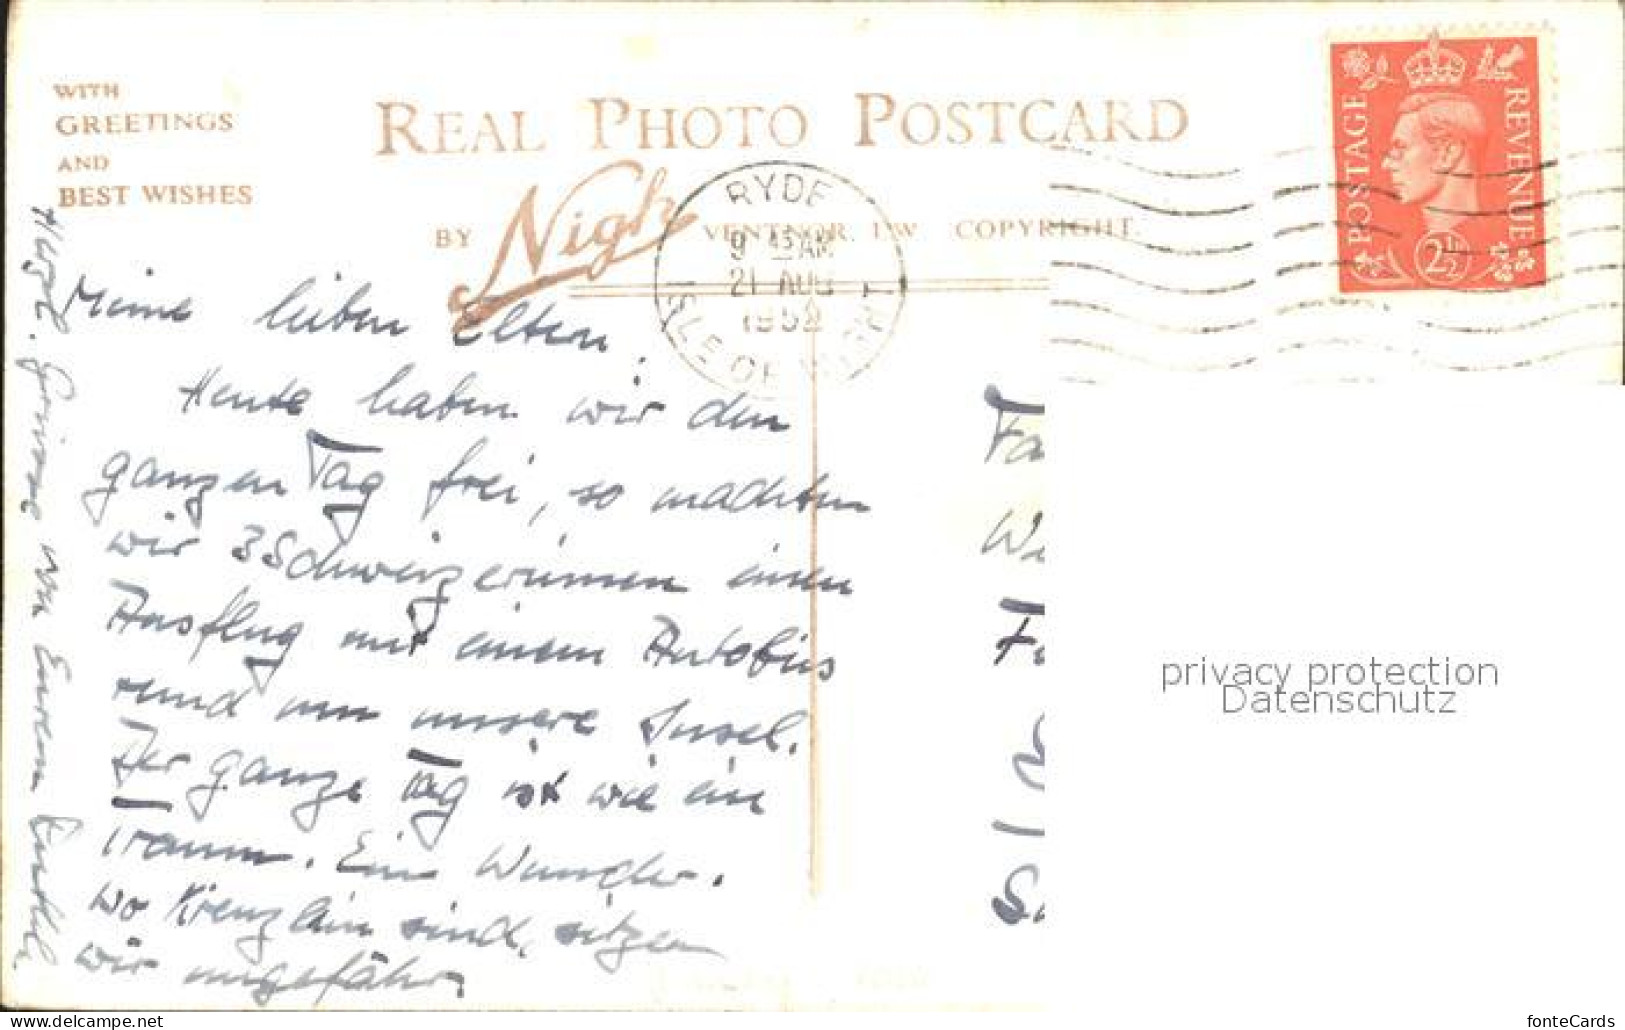 WITH
GREETINGS
AND
BEST WISHES
REAL PHOTO POSTCARD
BY Nigh VENTNOR. I.W. COPYRIGHT.
RYDE
9 45 AM
21 AUG
1952
ISLE OF WIGHT
POSTAGE
REVENUE
2½
Meine lieben Eltern,
Heute haben wir den
ganzen Tag frei, so machten
wir 3 Schweizerinnen einen
Ausflug mit einem Autobus
rund um unsere Insel.
Der ganze Tag ist wie ein
Traum. Ein Wunder.
wo Kreuzlein sind, sitzen
wir ungefähr.
Herzl. Grüsse von Eurem
Fa
We
S
privacy protection
Datenschutz
www.delcampe.net
fonteCards